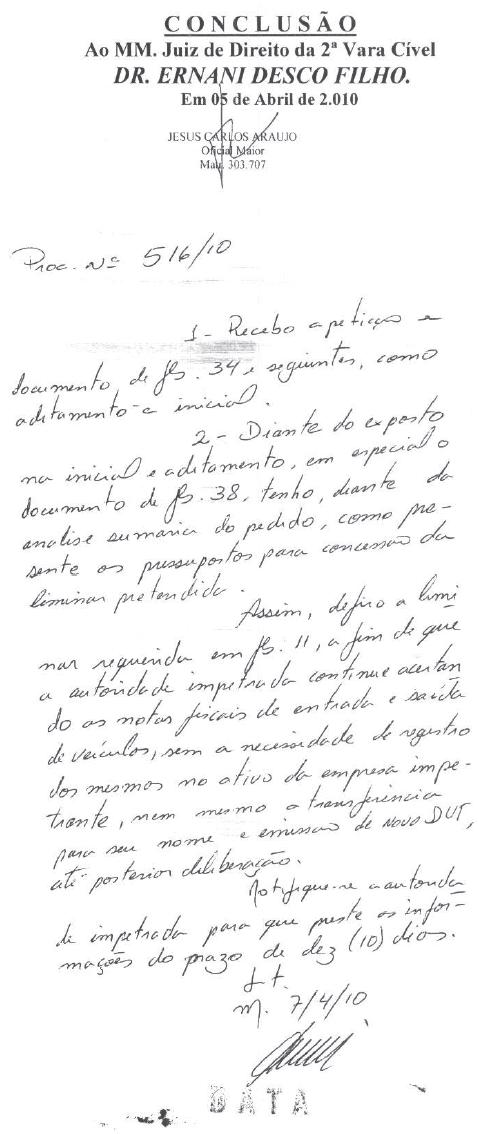 CONCLUSÃO
Ao MM. Juiz de Direito da 2ª Vara Cível
DR. ERNANI DESCO FILHO.
Em 05 de Abril de 2.010
JESUS CARLOS ARAUJO
Oficial Maior
Matr. 303.707
Proc. Nº 516/10
1 - Recebo a petição e
documento de fls. 34 e seguintes, como
aditamento a inicial.
2 - Diante do exposto
na inicial e aditamento, em especial o
documento de fls. 38, tenho, diante da
analise sumária do pedido, como pre-
sente os pressupostos para concessão da
liminar pretendida.
Assim, defiro a limi
nar requerida em fls. 11, a fim de que
a autoridade impetrada continue acertan
do as notas fiscais de entrada e saída
de veículos, sem a necessidade de registro
dos mesmos no ativo da empresa impe-
trante, nem mesmo a transferência
para seu nome e emissão de novo DUT,
até posterior deliberação.
Notifique-se a autorida
de impetrada para que preste as infor-
mações do prazo de dez (10) dias.
M. 7/4/10
DATA